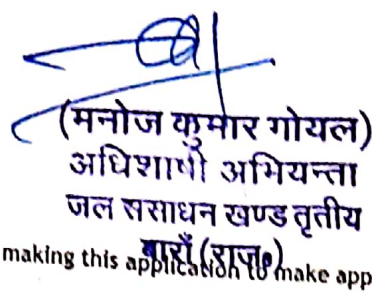 (मनोज कुमार गोयल)
अधिशाषी अभियन्ता
जल ससाधन खण्ड तृतीय
बाराँ (राज०)
making this application to make app